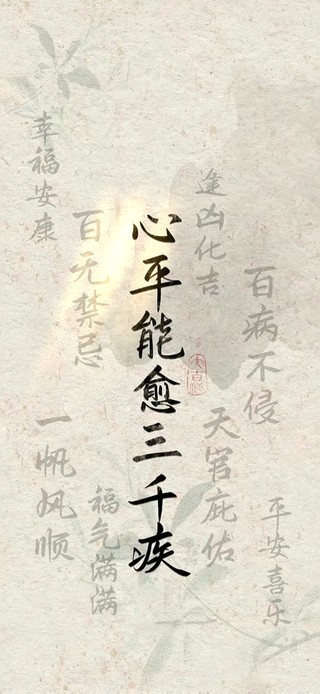 心平能愈三千疾
百病不侵
平安喜乐
逢凶化吉
天官庇佑
百无禁忌
福气满满
幸福安康
一帆风顺